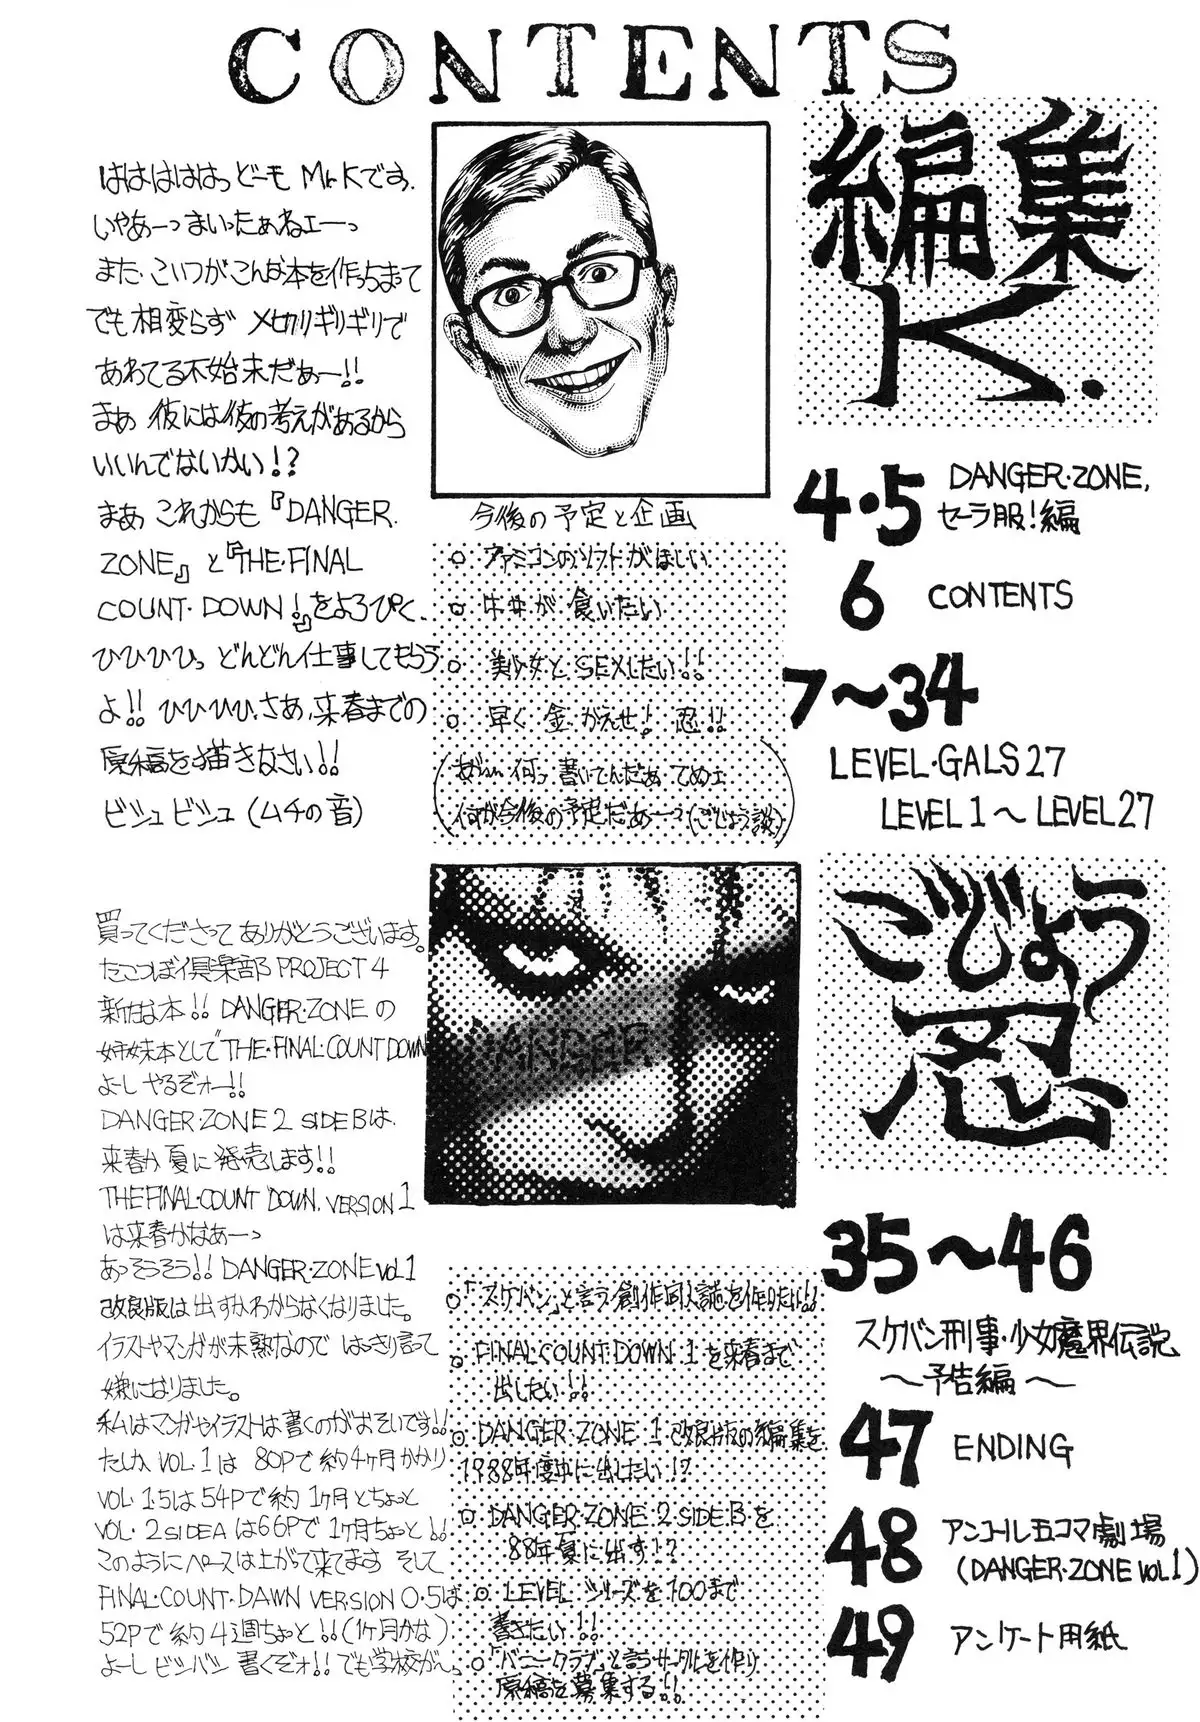 CONTENTS
ばはははははっどーも Mr.Kです。
いやあーっまいったぁねェーっ
また、こいつがこんな本を作っちまって
でも相変らず メ切ギリギリで
あわてる不始末だぁー!!
まぁ 彼には彼の考えがあるから
いいんでないかい!?
まぁ これからも『DANGER・
ZONE』と『THE・FINAL
COUNT・DOWN!』をよろぴく、
ひひひひっ どんどん仕事してもらう
よ!! ひひひひ、さあ、来春までの
原稿を描きなさい!!
ビシュ ビシュ (ムチの音)
今後の予定と企画
○ ファミコンのソフトがほしい
○ 牛丼が食いたい
○ 美少女とSEXしたい!!
○ 早く金・かえせ! 忍!!
何っ書いてんだぁ てめェ
何が今後の予定だぁーっ (ごじょう談)
編集
K.
4・5 DANGER・ZONE,
セーラ服!編
6 CONTENTS
7〜34
LEVEL・GALS27
LEVEL1〜LEVEL27
ごじょう
忍
35〜46
スケバン刑事・少女魔界伝説
〜予告編〜
47 ENDING
48 アンコール五コマ劇場
(DANGER・ZONE VOL1)
49 アンケート用紙
買ってくださってありがとうございます。
たこつぼ倶楽部PROJECT4
新社は本!! DANGER・ZONEの
姉妹本として"THE・FINAL・COUNT DOWN
よーし やるぞォー!!
DANGER・ZONE 2 SIDE Bは、
来春か夏に発売します!!
THE FINAL・COUNT DOWN. VERSION 1
は来春かなあーっ
あっそうそう!! DANGER・ZONE VOL1
改良版は出すかわからなくなりました。
イラストやマンガが未熟なので はっきり言って
嫌になりました。
私はマンガやイラストは書くのがおそいです!!
たしか VOL・1は 80Pで約4ヶ月かかり
VOL・1.5は54Pで約1ヶ月とちょっと
VOL・2 SIDEA は66Pで1ヶ月ちょっと!!
このようにペースは上がて来てます そして
FINAL・COUNT・DAWN VERSION 0.5は
52Pで約4週ちょっと!!(1ヶ月かな)
よーし ビシバシ 書くぞォ!! でも学校が…。
○「スケバン」と言う創作同人誌を作りたい!!
○ FINAL・COUNT・DOWN 1を来春まで
出したい!!
○ DANGER・ZONE 1 改良版の編集を
1988年度中に出したい!?
○ DANGER・ZONE 2 SIDE Bを
88年夏に出す!?
○ LEVEL シリーズを100まで
書きたい!!
○「バニークラブ」と言うサークルを作り
原稿を募集する!!